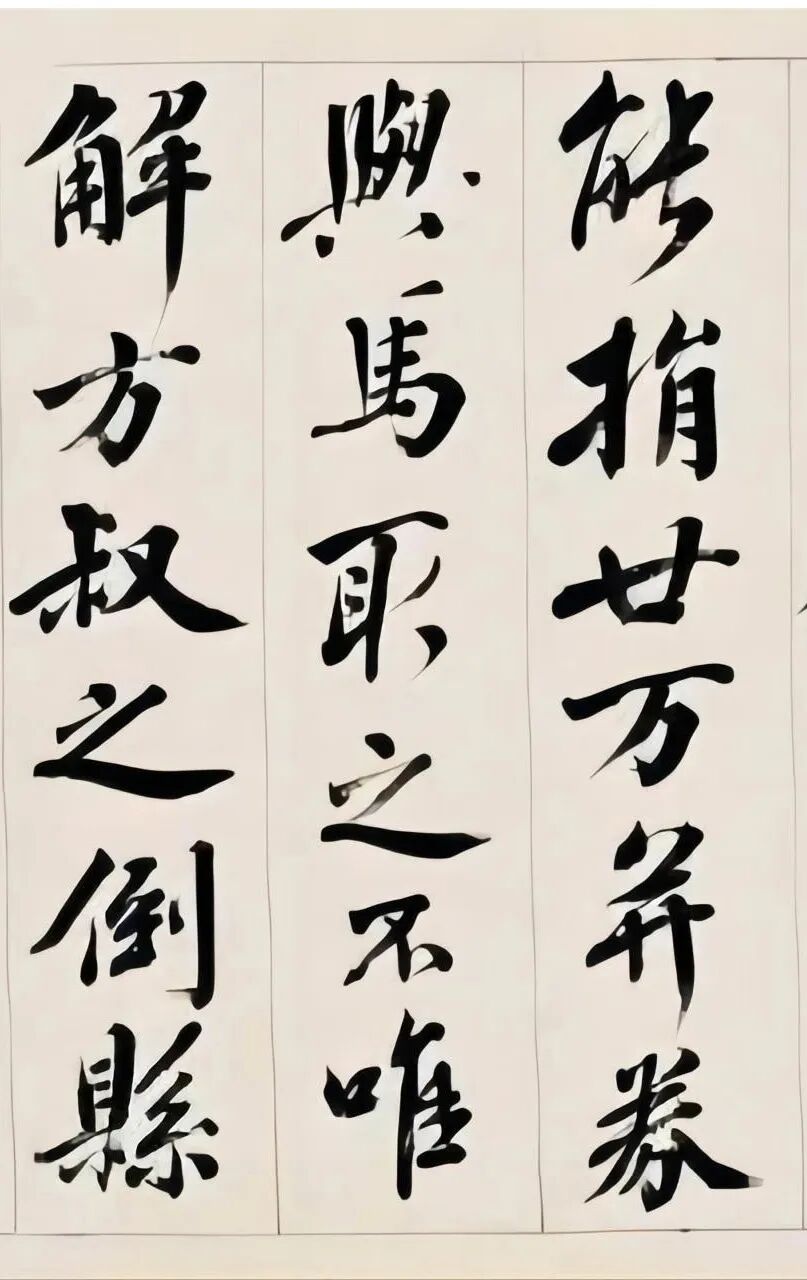 能捐廿万并券
與馬取之不唯
解方叔之倒縣